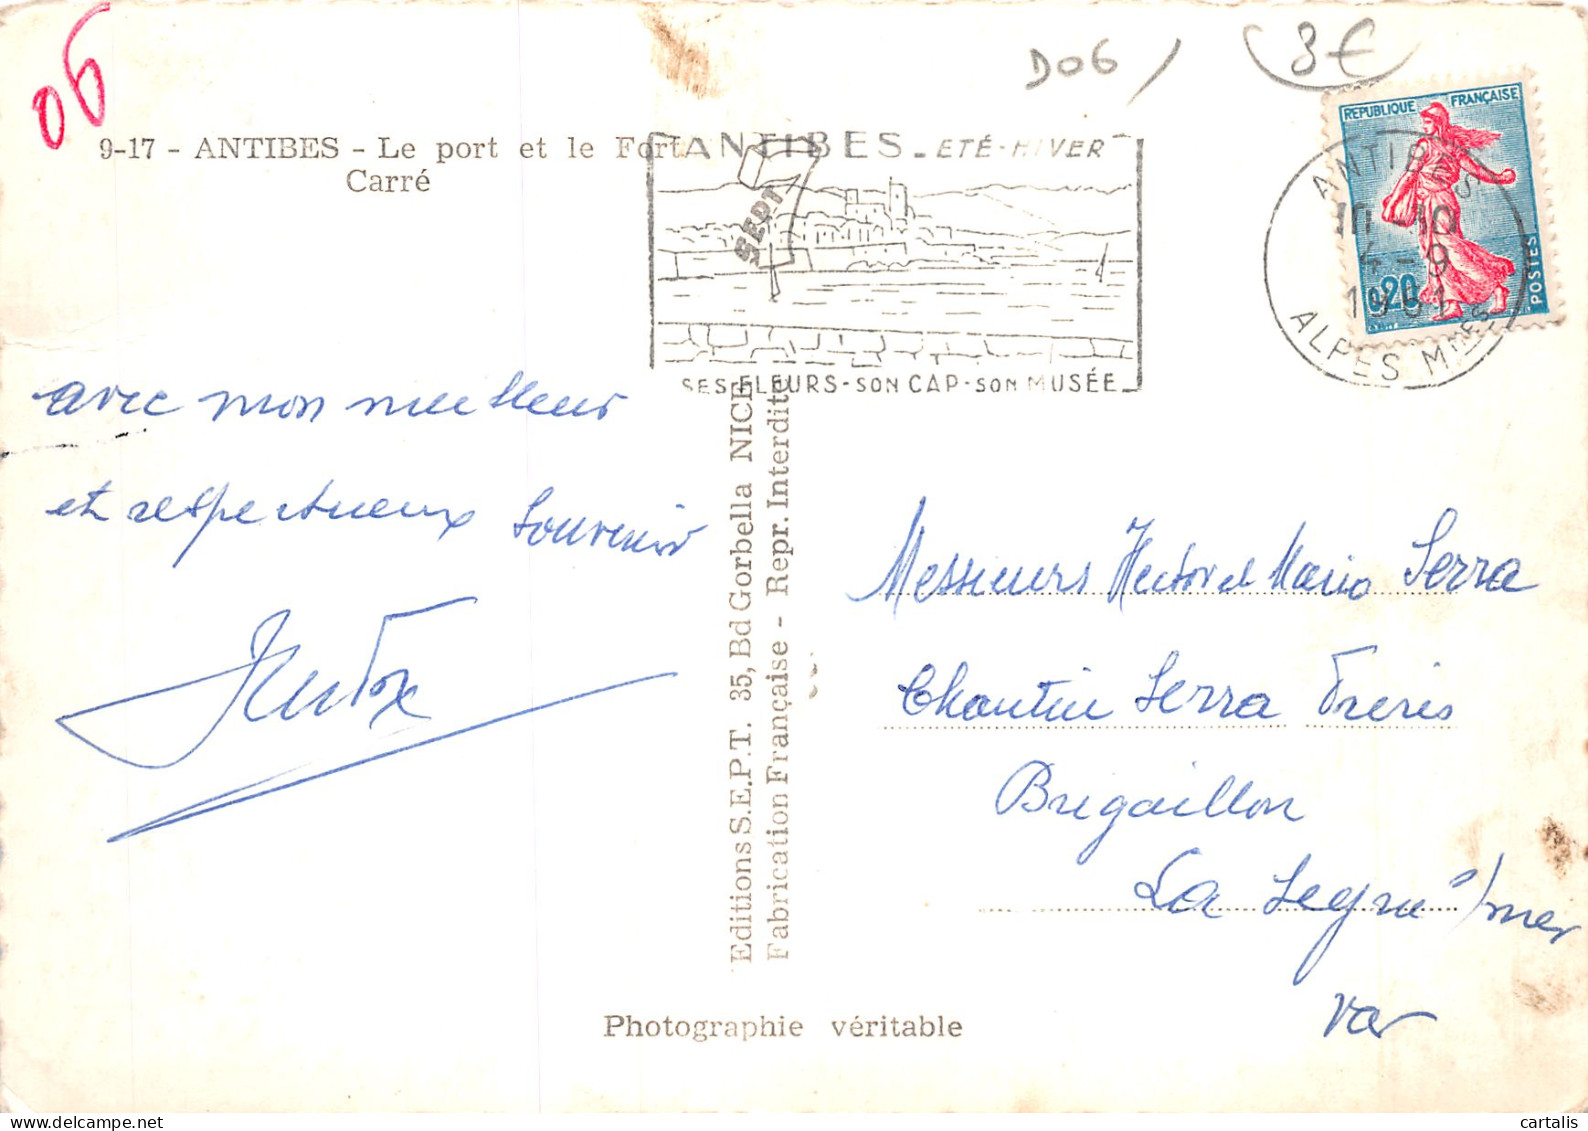 06
D06 /
8€
9-17 - ANTIBES - Le port et le Fort
Carré
ANTIBES - ETÉ - HIVER
SEPT
SES FLEURS - SON CAP - SON MUSÉE
REPUBLIQUE FRANÇAISE
0,20
POSTES
ANTIBES
10
4 - 9
1961
ALPES MMES
avec mon meilleur
et respectueux souvenir
Editions S.E.P.T. 35, Bd Gorbella NICE
Fabrication Française - Repr. Interdite
Messieurs Hector et Mario Serra
Chantier Serra Frères
Brégaillon
La Seyne s/mer
Var
Photographie véritable
cartalis